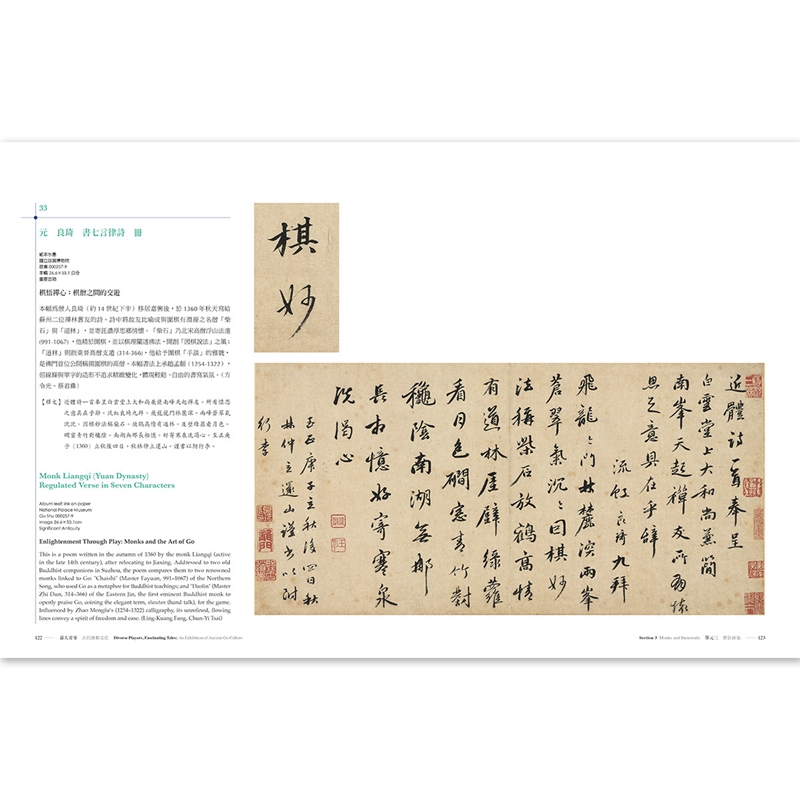 33
元 良琦 書七言律詩 冊
紙本水墨
國立故宮博物院
故書 000257-9
本幅 26.6×53.1 公分
重要古物
棋悟禪心：棋僧之間的交遊
本幅為僧人良琦（約 14 世紀下半）移居嘉興後，於 1360 年秋天寫給
蘇州二位禪林舊友的詩。詩中將故友比喻成與圍棋有淵源之名僧「柴
石」與「道林」，並寄託濃厚思鄉情懷。「柴石」乃北宋高僧浮山法遠
(991-1067)，他精於圍棋，並以棋理闡述佛法，開創「因棋說法」之風；
「道林」則指東晉高僧支遁 (314-366)，他給予圍棋「手談」的雅號，
是佛門首位公開稱揚圍棋的高僧。本幅書法上承趙孟頫（1254-1322），
但線條與單字的造形不追求精緻變化，體現輕鬆、自由的書寫氣氛。（方
令光、蔡君彝）
【釋文】近體詩一首奉呈白雲堂上大和尚兼簡南峰天起禪友。所有懷思
之意具在乎辭。沈痾良琦九拜。飛龍龍門林麓深。兩峰蒼翠氣
沉沉。因棋妙法稱柴石。放鶴高情有道林。崖壁綠蘿看月色。
磵窗青竹對穐陰。南湖無那長相憶。好寄寒泉洗渴心。至正庚
子（1360）立秋後四日。秋林仲立還山。謹書以附行李。
Monk Liangqi (Yuan Dynasty)
Regulated Verse in Seven Characters
Album leaf; ink on paper
National Palace Museum
Gu Shu 000257-9
Image 26.6×53.1cm
Significant Antiquity
Enlightenment Through Play: Monks and the Art of Go
This is a poem written in the autumn of 1360 by the monk Liangqi (active
in the late 14th century), after relocating to Jiaxing. Addressed to two old
Buddhist companions in Suzhou, the poem compares them to two renowned
monks linked to Go: "Chaishi" (Master Fayuan, 991–1067) of the Northern
Song, who used Go as a metaphor for Buddhist teachings; and "Daolin" (Master
Zhi Dun, 314–366) of the Eastern Jin, the first eminent Buddhist monk to
openly praise Go, coining the elegant term, shoutan (hand talk), for the game.
Influenced by Zhao Mengfu's (1254–1322) calligraphy, its unrefined, flowing
lines convey a spirit of freedom and ease. (Ling-Kuang Fang, Chun-Yi Tsai)
122
Diverse Players, Fascinating Tales: An Exhibition of Ancient Go Culture
棋妙
近體詩一首奉呈
白雲堂上大和尚兼簡
南峯天起禪友所有懷
思之意具在乎辭
沈痾良琦九拜
飛龍〻門林麓深兩峯
蒼翠氣沉〻因棋妙
法稱柴石放鶴高情
有道林厓壁綠蘿
看月色磵窗青竹對
穐陰南湖無那
長相憶好寄寒泉
洗渴心
至正庚子立秋後四日秋
林仲立還山謹書以附
行李
Section 3 Monks and Immortals 單元三
123